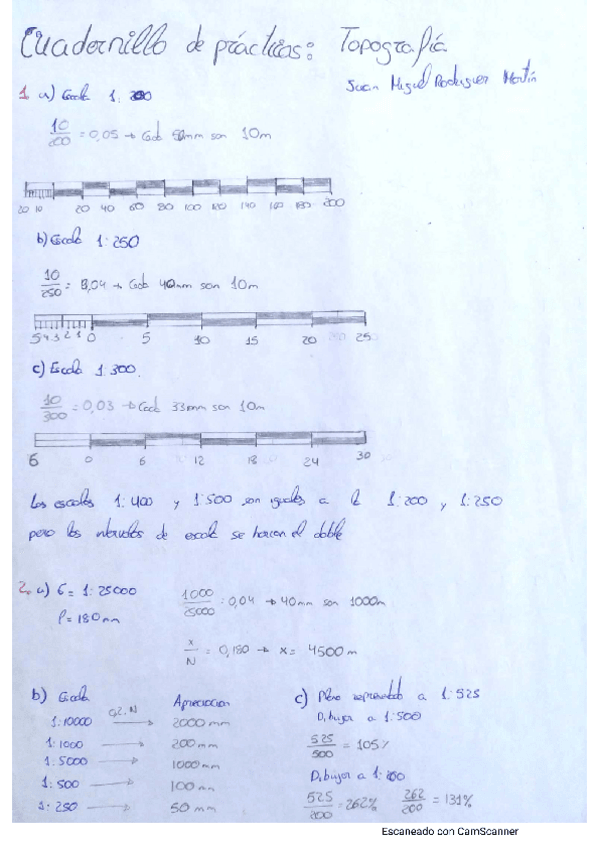 Cuadernillo de prácticas: Topografía
Juan Miguel Rodriguez Martín
1. a) Escala 1:200
10/200 = 0,05 → Cada 50mm son 10m
20 10 20 40 60 80 100 120 140 160 180 200
b) Escala 1:250
10/250 = 0,04 → Cada 40mm son 10m
5 4 3 2 1 0 5 10 15 20 25
c) Escala 1:300.
10/300 = 0,03 → Cada 33mm son 10m
6 0 6 12 18 24 30
Las escalas 1:400 y 1:500 son iguales a 1:200 y 1:250
pero los intervalos de escala se hacen el doble
2. a) E = 1:25000
1000/25000 = 0,04 → 40mm son 1000m
P = 180mm
x/N = 0,180 → x = 4500m
b) Escala Apreciacion
1:10000 0,2·N → 2000mm
1:1000 → 200mm
1:5000 → 1000mm
1:500 → 100mm
1:250 → 50mm
c) Plano representado a 1:525
Dibujar a 1:500
525/500 = 105%
Dibujar a 1:200
525/200 = 262% 262/200 = 131%
Escaneado con CamScanner